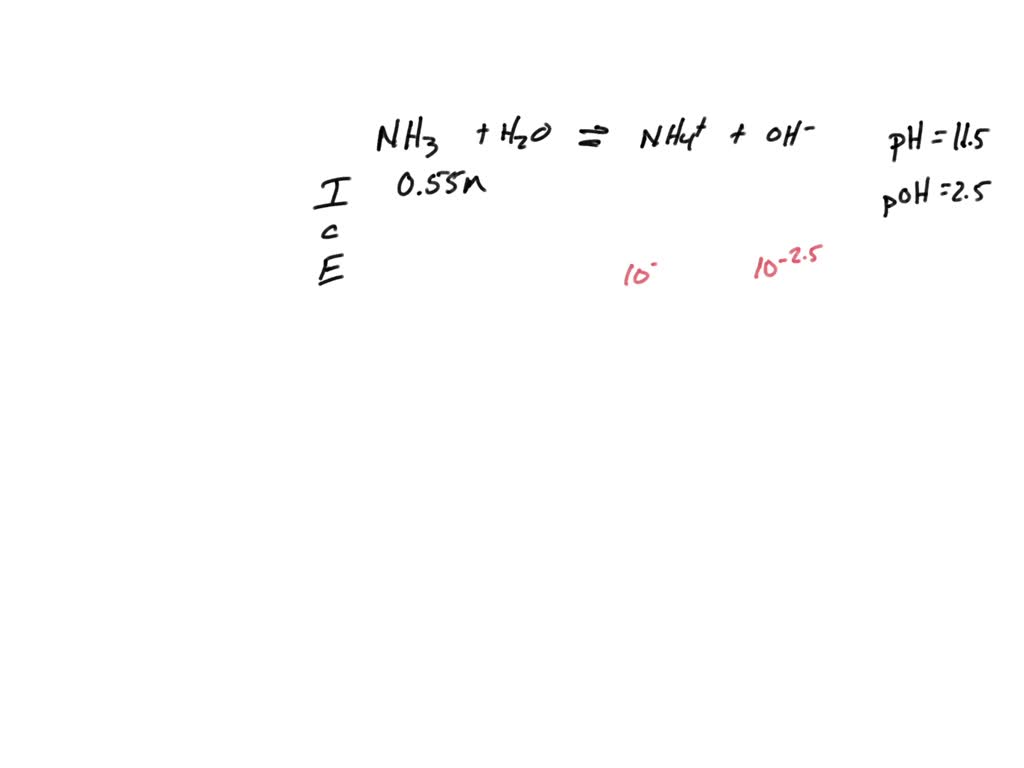 NH₃ + H₂O ⇌ NH₄⁺ + OH⁻ pH = 11.5
I 0.55M pOH = 2.5
C
E 10⁻ 10⁻²·⁵